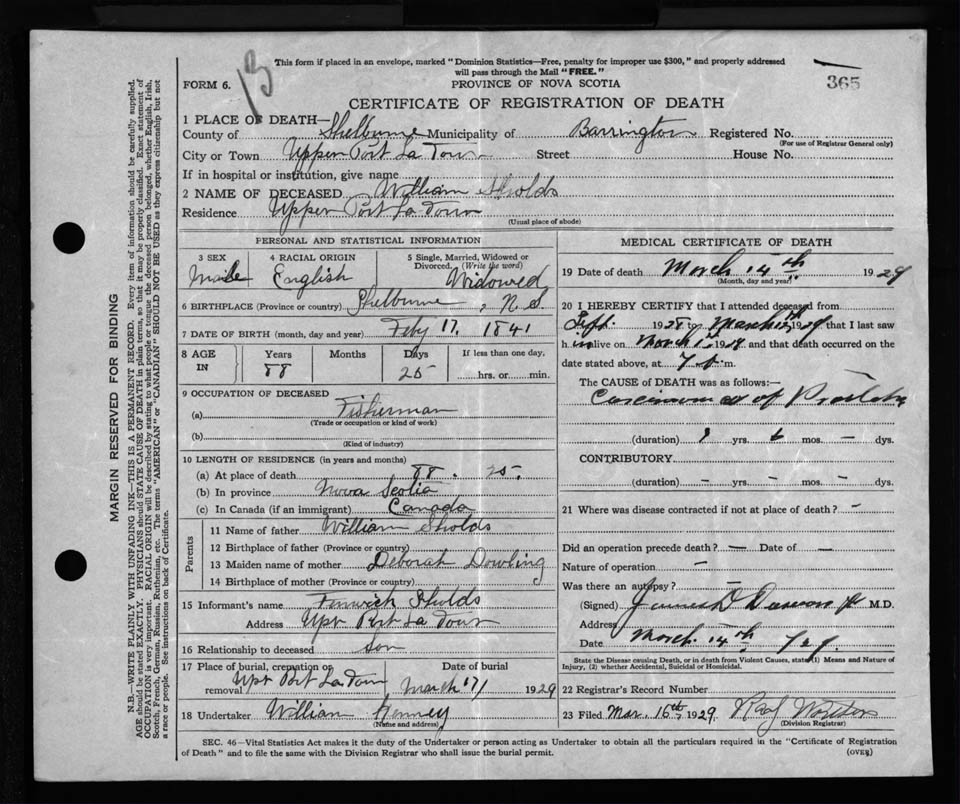 This form if placed in an envelope, marked "Dominion Statistics—Free, penalty for improper use $300," and properly addressed
will pass through the Mail "FREE."
13
365
FORM 6.
PROVINCE OF NOVA SCOTIA
CERTIFICATE OF REGISTRATION OF DEATH
1 PLACE OF DEATH—
County of Shelburne Municipality of Barrington Registered No.
(For use of Registrar General only)
City or Town Upper Port La Tour Street House No.
If in hospital or institution, give name
2 NAME OF DECEASED William Sholds
Residence Upper Port La Tour
(Usual place of abode)
PERSONAL AND STATISTICAL INFORMATION
3 SEX Male 4 RACIAL ORIGIN English 5 Single, Married, Widowed or Divorced. (Write the word) Widowed
6 BIRTHPLACE (Province or country) Shelburne, N.S.
7 DATE OF BIRTH (month, day and year) Feby 17, 1841
8 AGE IN Years 88 Months Days 25 If less than one day, hrs. or min.
9 OCCUPATION OF DECEASED
(a) Fisherman
(Trade or occupation or kind of work)
(b)
(Kind of industry)
10 LENGTH OF RESIDENCE (in years and months)
(a) At place of death 88. 25.
(b) In province Nova Scotia
(c) In Canada (if an immigrant) Canada
Parents
11 Name of father William Sholds
12 Birthplace of father (Province or country)
13 Maiden name of mother Deborah Dowling
14 Birthplace of mother (Province or country)
15 Informant's name Fenwick Sholds
Address Upr Port La Tour
16 Relationship to deceased son
17 Place of burial, cremation or removal Upr Port La Tour Date of burial March 17/ 1929
18 Undertaker William Kenney
(Name and address)
MEDICAL CERTIFICATE OF DEATH
19 Date of death March 14th 1929
(Month, day and year)
20 I HEREBY CERTIFY that I attended deceased from
Sept. 1928 to March 1929 that I last saw
h im alive on March 1929 and that death occurred on the
date stated above, at 7 m.
The CAUSE OF DEATH was as follows:—
Carcinoma of Prostate
(duration) yrs. 6 mos. — dys.
CONTRIBUTORY.
(duration) — yrs. — mos. — dys.
21 Where was disease contracted if not at place of death? —
Did an operation precede death? — Date of —
Nature of operation —
Was there an autopsy? —
(Signed) James M.D.
Address
Date March 14th 1929
State the Disease causing Death, or in death from Violent Causes, state (1) Means and Nature of
Injury, (2) whether Accidental, Suicidal or Homicidal.
22 Registrar's Record Number
23 Filed Mar. 16th 1929
(Division Registrar)
SEC. 46—Vital Statistics Act makes it the duty of the Undertaker or person acting as Undertaker to obtain all the particulars required in the "Certificate of Registration
of Death" and to file the same with the Division Registrar who shall issue the burial permit.
(OVER)
MARGIN RESERVED FOR BINDING
N.B.—WRITE PLAINLY WITH UNFADING INK—THIS IS A PERMANENT RECORD. Every item of information should be carefully supplied.
AGE should be stated EXACTLY. PHYSICIANS should STATE CAUSE OF DEATH in plain terms, so that it may be properly classified. Exact statement of
OCCUPATION is very important. RACIAL ORIGIN will be described by stating to what people or tongue the deceased person belonged, whether English, Irish,
Scotch, French, German, Russian, Ruthenian, etc. The terms "AMERICAN" or "CANADIAN" SHOULD NOT BE USED as they express citizenship but not
a race or people. See instructions on back of Certificate.